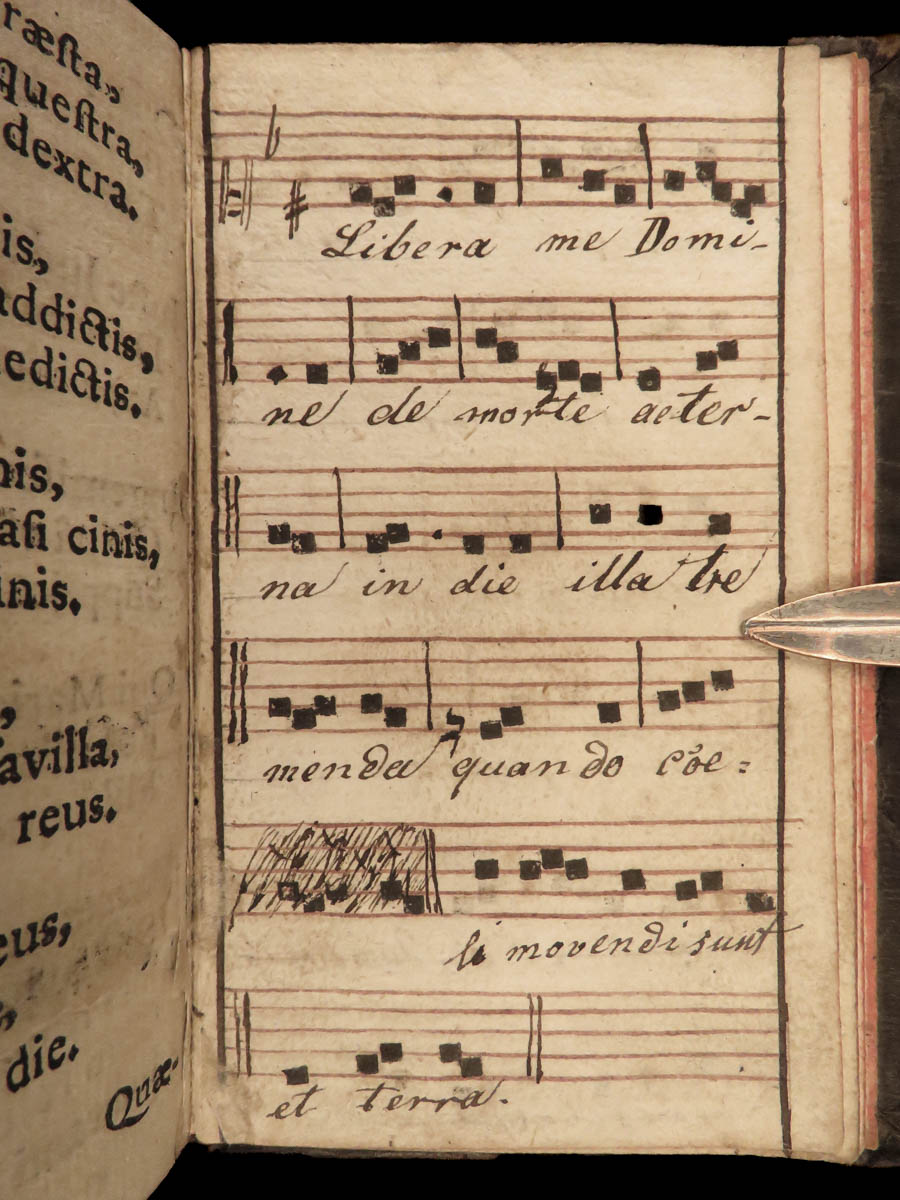 ræſta,
Queſtra,
dextra.
is,
addictis,
nedictis.
nis,
aſi cinis,
inis.
,
avilla,
reus.
eus,
,
die.
Quæ-
Libera me Domi-
ne de morte aeter-
na in die illa tre
menda quando coe=
li movendi sunt
et terra.